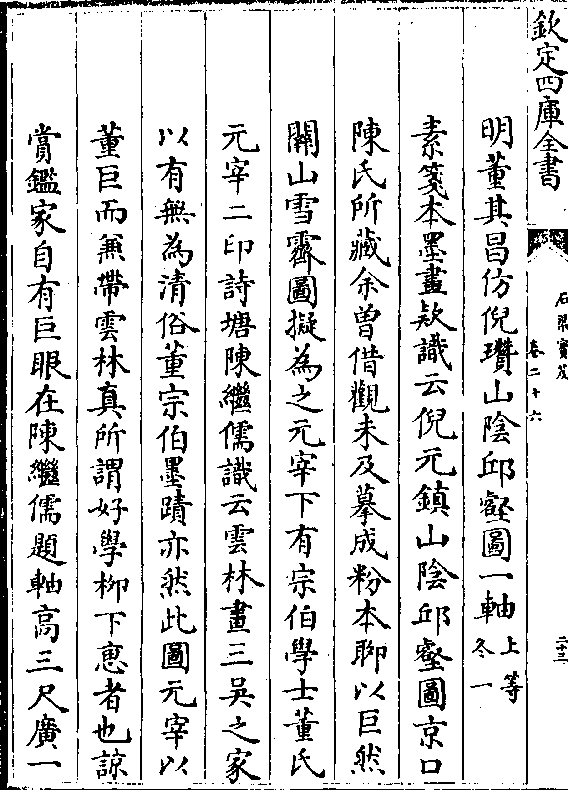 欽定四庫全書
石渠寶笈
卷二十六
二十三
明董其昌仿倪瓚山陰邱壑圖一軸上等冬一
素箋本墨畫款識云倪元鎮山陰邱壑圖京口
陳氏所藏余曾借觀未及摹成粉本聊以巨然
關山雪霽圖擬為之元宰下有宗伯學士董氏
元宰二印詩塘陳繼儒識云雲林畫三吳之家
以有無為清俗董宗伯墨蹟亦然此圖元宰以
董巨而兼帶雲林真所謂好學柳下惠者也諒
賞鑑家自有巨眼在陳繼儒題軸高三尺廣一